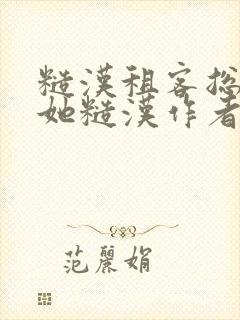 糙漢租客总
她糙漢作者
范麗娟